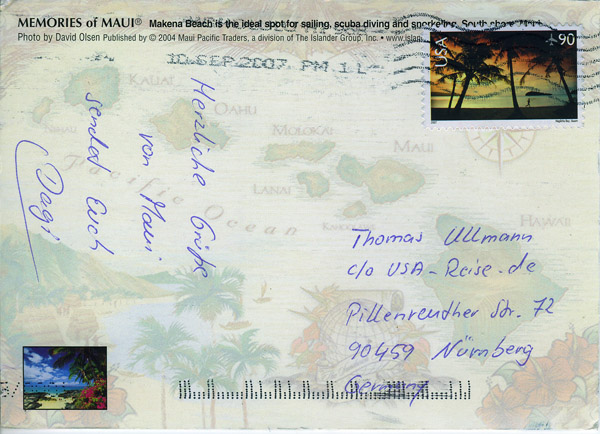 MEMORIES of MAUI® Makena Beach is the ideal spot for sailing, scuba diving and snorkeling. South
Photo by David Olsen Published by © 2004 Maui Pacific Traders, a division of The Islander Group, Inc. •
10 SEP 2007 PM 1 L
USA
90
KAUAI
NIIHAU
OAHU
MOLOKAI
MAUI
LANAI
HAWAII
Pacific Ocean
Herzliche Grüße
von Maui
sendet Euch
Dagi
Thomas Ullmann
c/o USA-Reise.de
Pillenreuther Str. 72
90459 Nürnberg
Germany